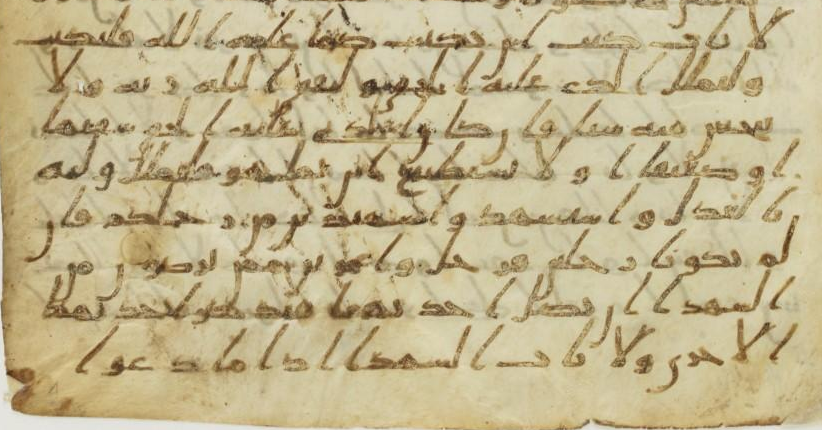 لا ياب كتب ان يكتب كما علمه الله فليكتب
وليملل الذى عليه الحق وليتق الله ربه ولا
يبخس منه شيا فان كان الذى عليه الحق سفيها
او ضعيفا او لا يستطيع ان يمل هو فليملل وليه
بالعدل واستشهدوا شهيدين من رجلكم فان
لم يكونا رجلين فرجل وامراتن ممن ترضون من
الشهدا ان تضل احديهما فتذكر احديهما
الاخرى ولا ياب الشهدا اذا ما دعوا